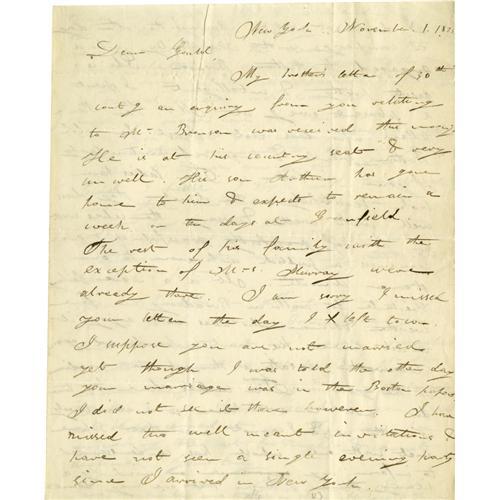 New York November 1. 18
Dear Gould
My brother's letter of 30th
contg an enquiry from you relating
to Mr Bronson was received this morng.
He is at his country seat & very
unwell His son Arthur has gone
home to him & expects to remain a
week or ten days at Greenfield.
The rest of his family with the
exception of Mrs. Murray were
already there. I am sorry I missed
your letter the day I left town.
I suppose you are not married
yet though I was told the other day
your marriage was in the Boston papers
I did not see it there however. I have
missed two well meant invitations &
have not seen a single evening party
since I arrived in New York.